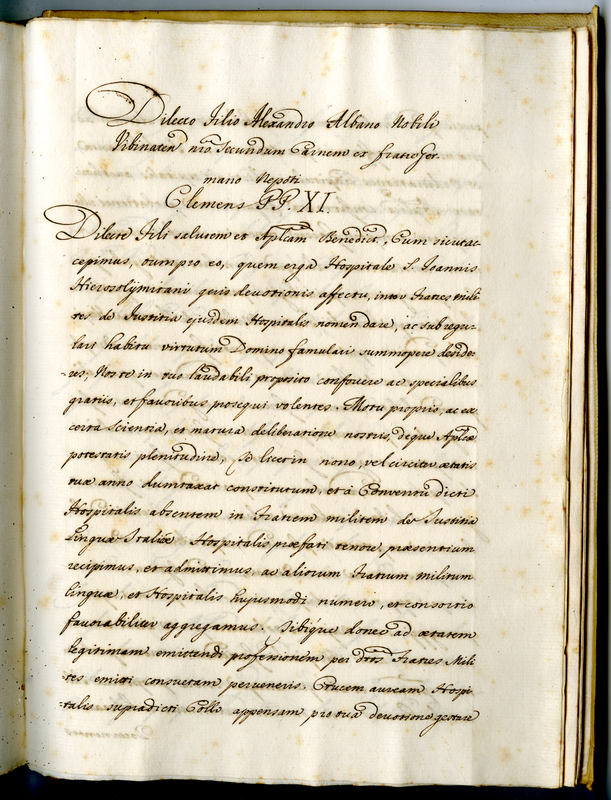 Dilecto Filio Alexandro Albano Nobili
Urbinaten nro Secundum Carnem ex fratre ger-
mano Nepoti
Clemens PP. XI.
Dilecte Fili salutem et Aplicam Benedict. Cum sicut ac-
cepimus, tum pro eo, quem erga Hospitale S. Ioannis
Hierosolymitani geris devotionis affectu, inter Fratres mili-
tes de Iustitia ejusdem Hospitalis nomen dare, ac sub regu-
lari habitu virtutum Domino famulari summopere deside-
res, Nos te in tuo laudabili proposito confovere ac specialibus
gratiis, et favoribus prosequi volentes. Motu proprio, ac ex
certa scientia, et matura deliberatione nostris, deque Aplicæ
potestatis plenitudine, Te licet in nono, vel circiter ætatis
tuæ anno dumtaxat constitutum, et a Conventu dicti
Hospitalis absentem in Fratrem militem de Iustitia
Linguæ Italiæ Hospitalis præfati tenore præsentium
recipimus, et admittimus, ac aliorum Fratrum militum
Linguæ, et Hospitalis hujusmodi numero, et consortio
favorabiliter aggregamus. Tibique donec ad ætatem
legitimam emittendi professionem per dtos Fratres Mili-
tes emitti consuetam perveneris Crucem auream Hospi-
talis supradicti Collo appensam pro tua devotione gestare